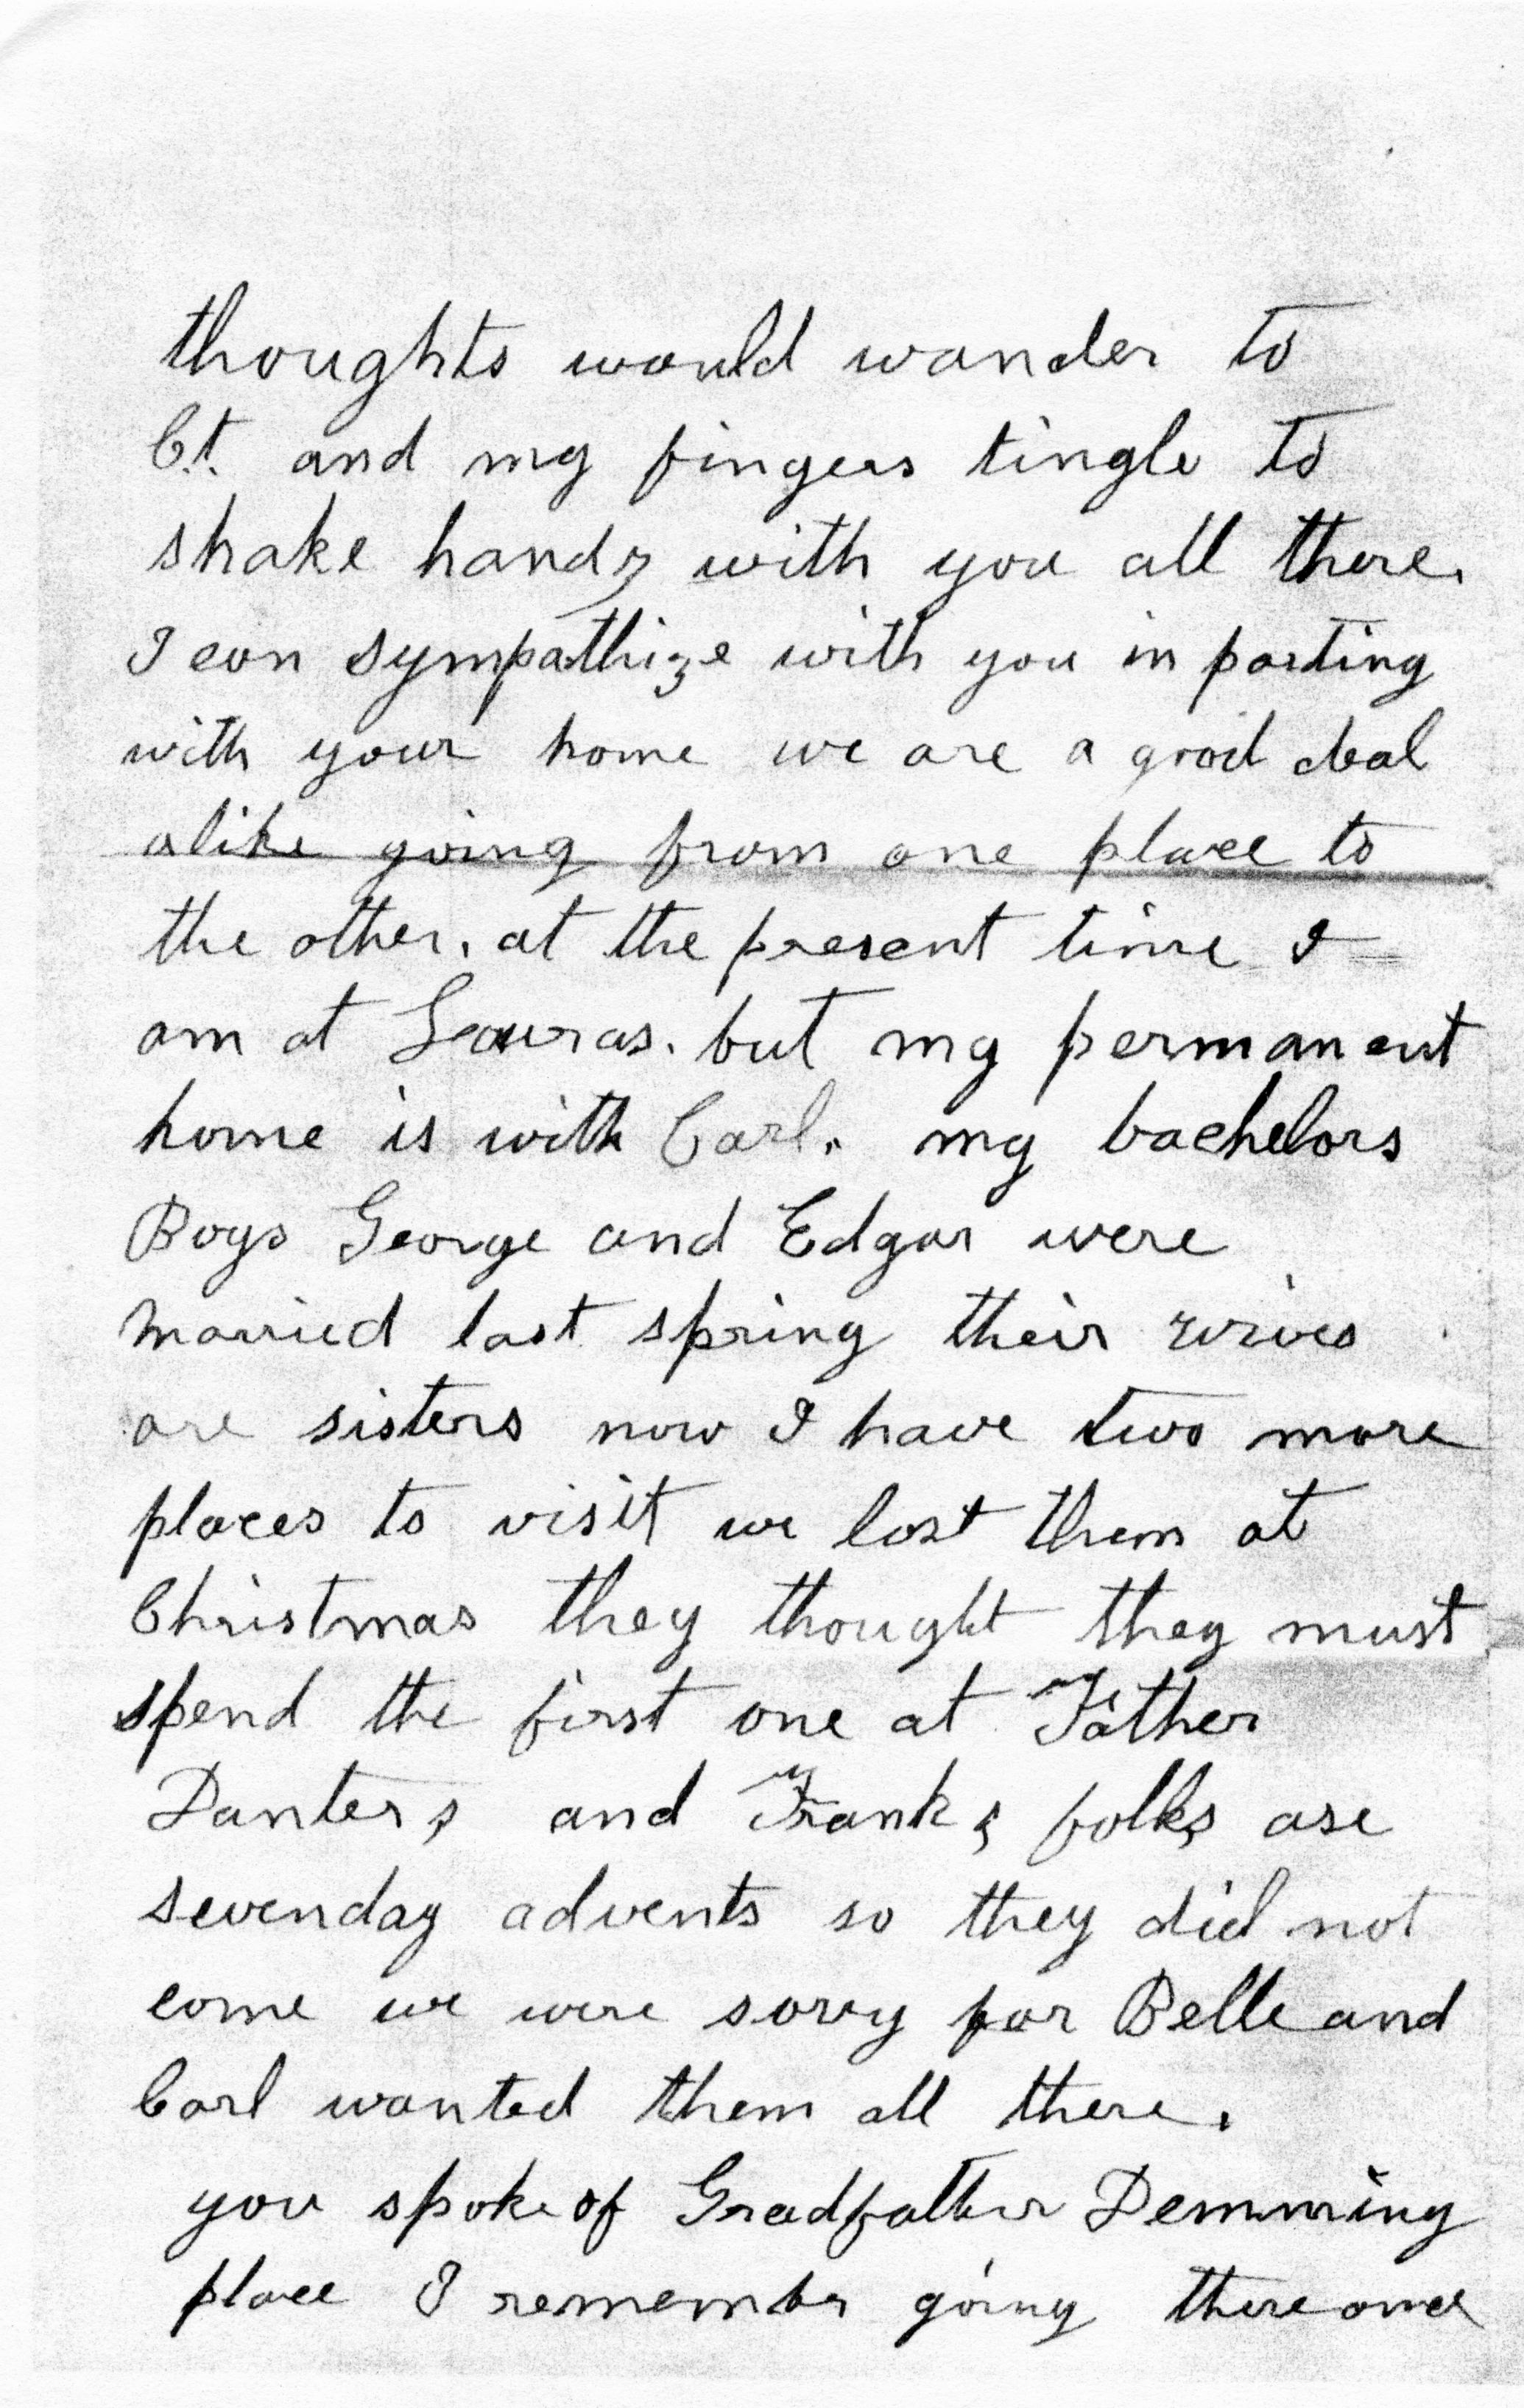 thoughts would wander to
Ct. and my fingers tingle to
shake hands with you all there.
I can sympathize with you in parting
with your home we are a good deal
alike going from one place to
the other. at the present time I
am at Lauras. but my permanent
home is with Carl. my bachelors
Boys George and Edgar were
married last spring their wives
are sisters now I have two more
places to visit we lost them at
Christmas they thought they must
spend the first one at Father
Danters, and Franks folks are
sevenday advents so they did not
come we were sorry for Belle and
Carl wanted them all there.
you spoke of Gradfather Demming
place I remember going there once